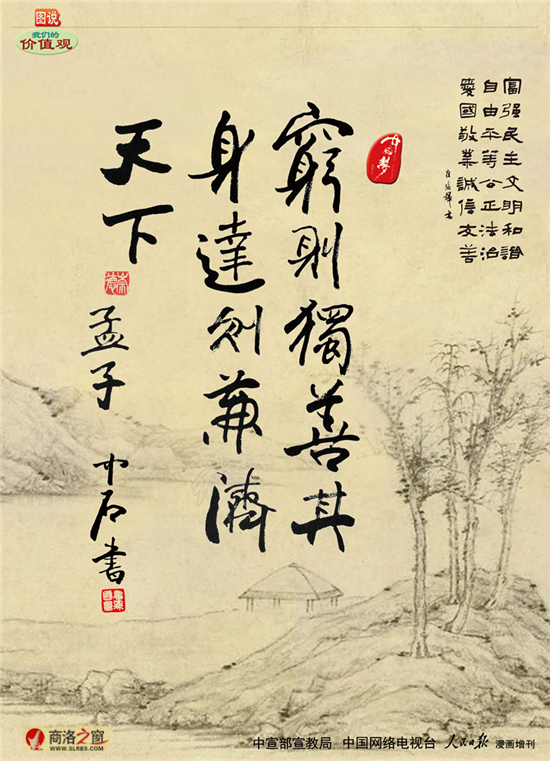 图说
我们的
价值观
富强民主文明和谐
自由平等公正法治
爱國敬業誠信友善
中国梦
窮則獨善其
身達則兼濟
天下
孟子 中石書
商洛之窗
WWW.SLRBS.COM
中宣部宣教局 中国网络电视台 人民日报 漫画增刊